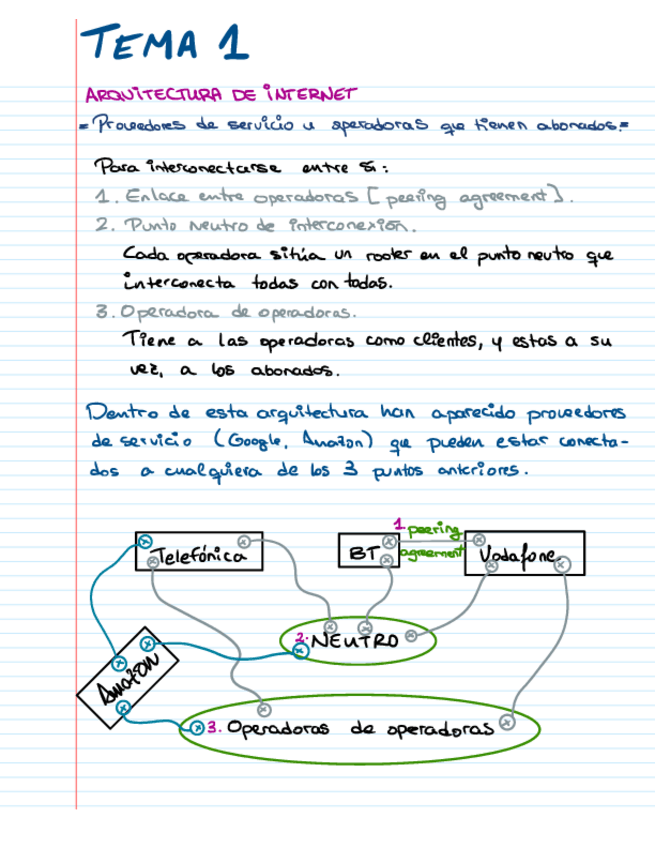 TEMA 1
ARQUITECTURA DE INTERNET
= Proveedores de servicio u operadoras que tienen abonados. =
Para interconectarse entre sí:
1. Enlace entre operadoras [peering agreement].
2. Punto Neutro de interconexión.
Cada operadora sitúa un rooter en el punto neutro que
interconecta todas con todas.
3. Operadora de operadoras.
Tiene a las operadoras como clientes, y estas a su
vez, a los abonados.
Dentro de esta arquitectura han aparecido proveedores
de servicio (Google, Amazon) que pueden estar conecta-
dos a cualquiera de los 3 puntos anteriores.
1 peering
agreement
Telefónica
BT
Vodafone
2. NEUTRO
Amazon
3. Operadoras de operadoras